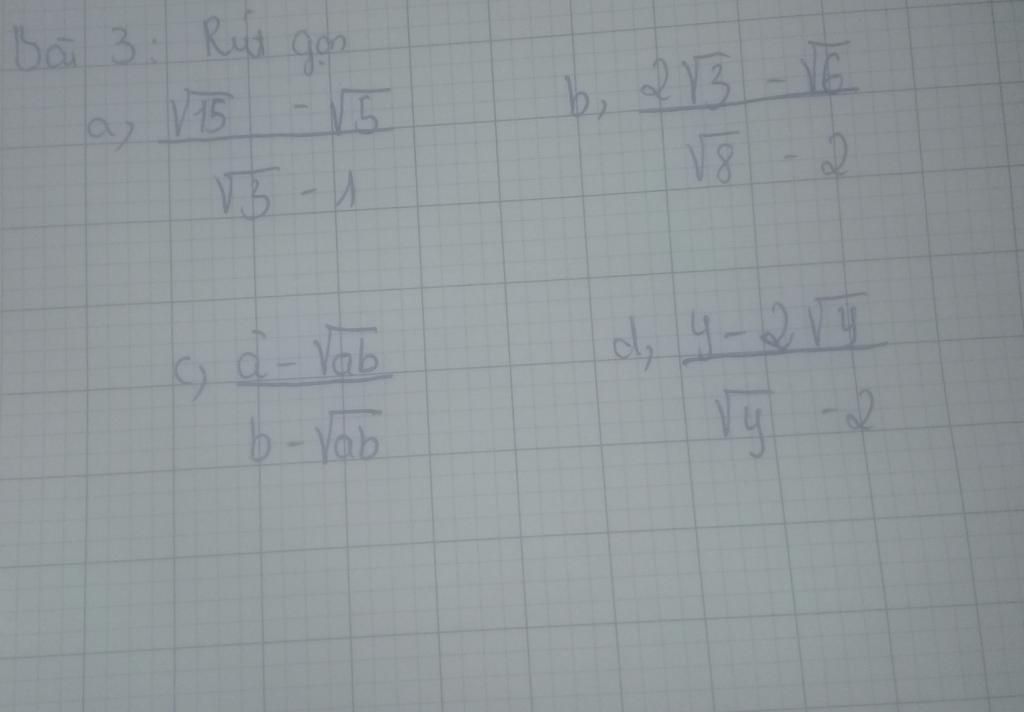 Bài 3: Rút gọn
a, (√15 - √5) / (√3 - 1) b, (2√3 - √6) / (√8 - 2)
c, (a - √ab) / (b - √ab) d, (y - 2√y) / (√y - 2)